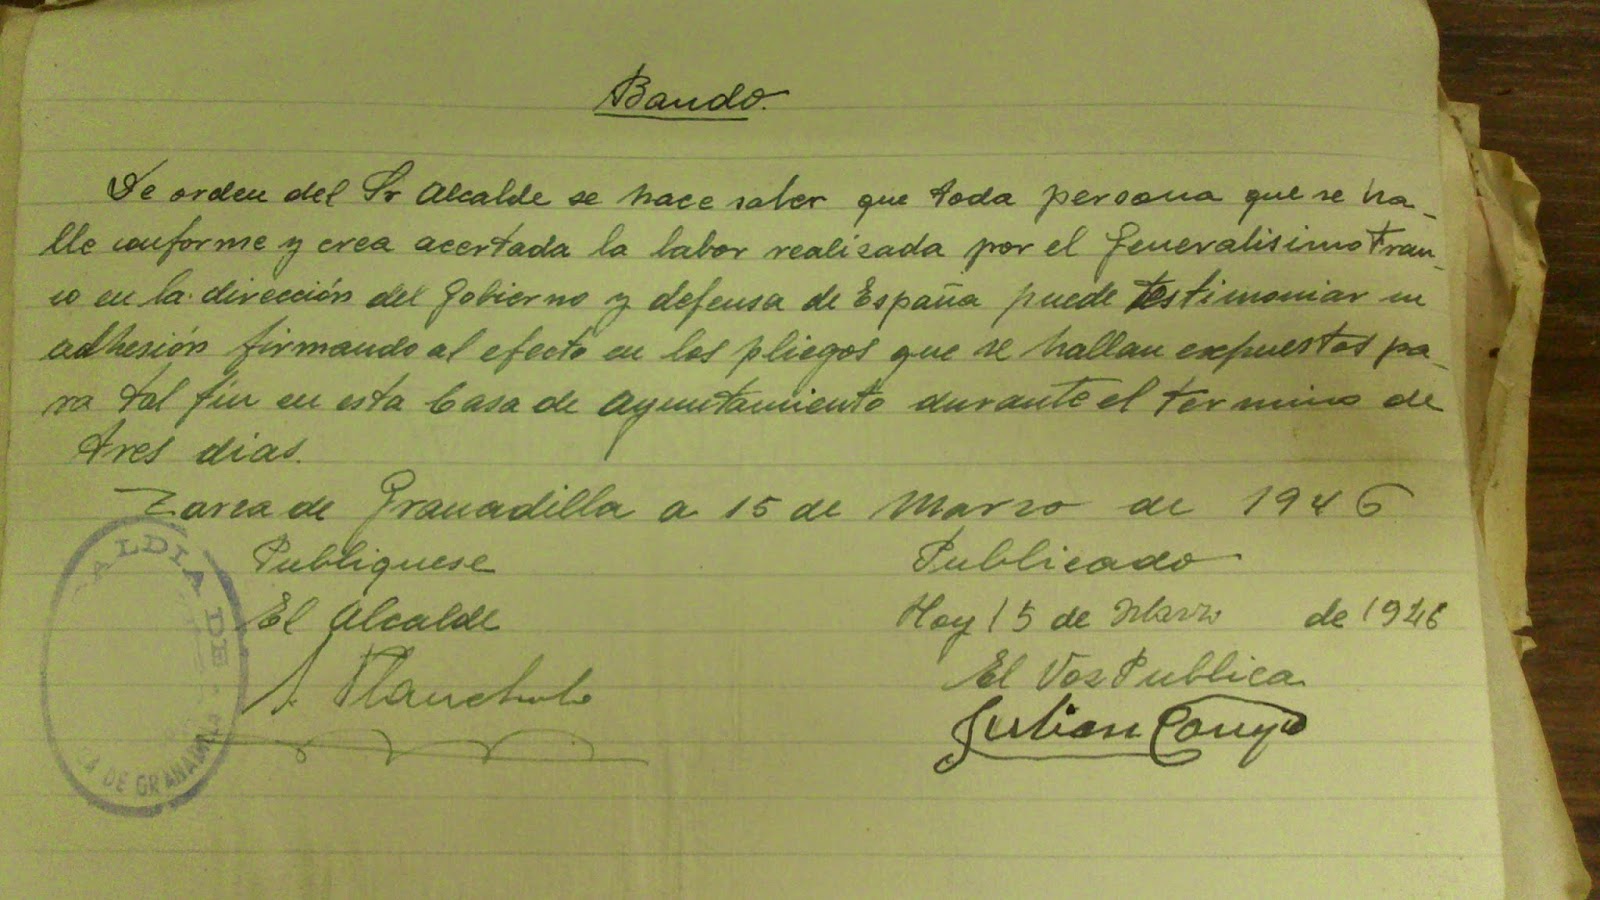 Bando.
De orden del Sr Alcalde se hace saber que toda persona que se ha-
lle conforme y crea acertada la labor realizada por el Generalisimo Fran-
co en la dirección del Gobierno y defensa de España puede testimoniar su
adhesión firmando al efecto en los pliegos que se hallan expuestos pa-
ra tal fin en esta Casa de Ayuntamiento durante el termino de
tres dias.
Zarza de Granadilla a 15 de Marzo de 1946
Publiquese
Publicado
El Alcalde
Hoy 15 de Marzo de 1946
El Voz Publica
Julian
ALDIA DE
ZA DE GRANADILLA